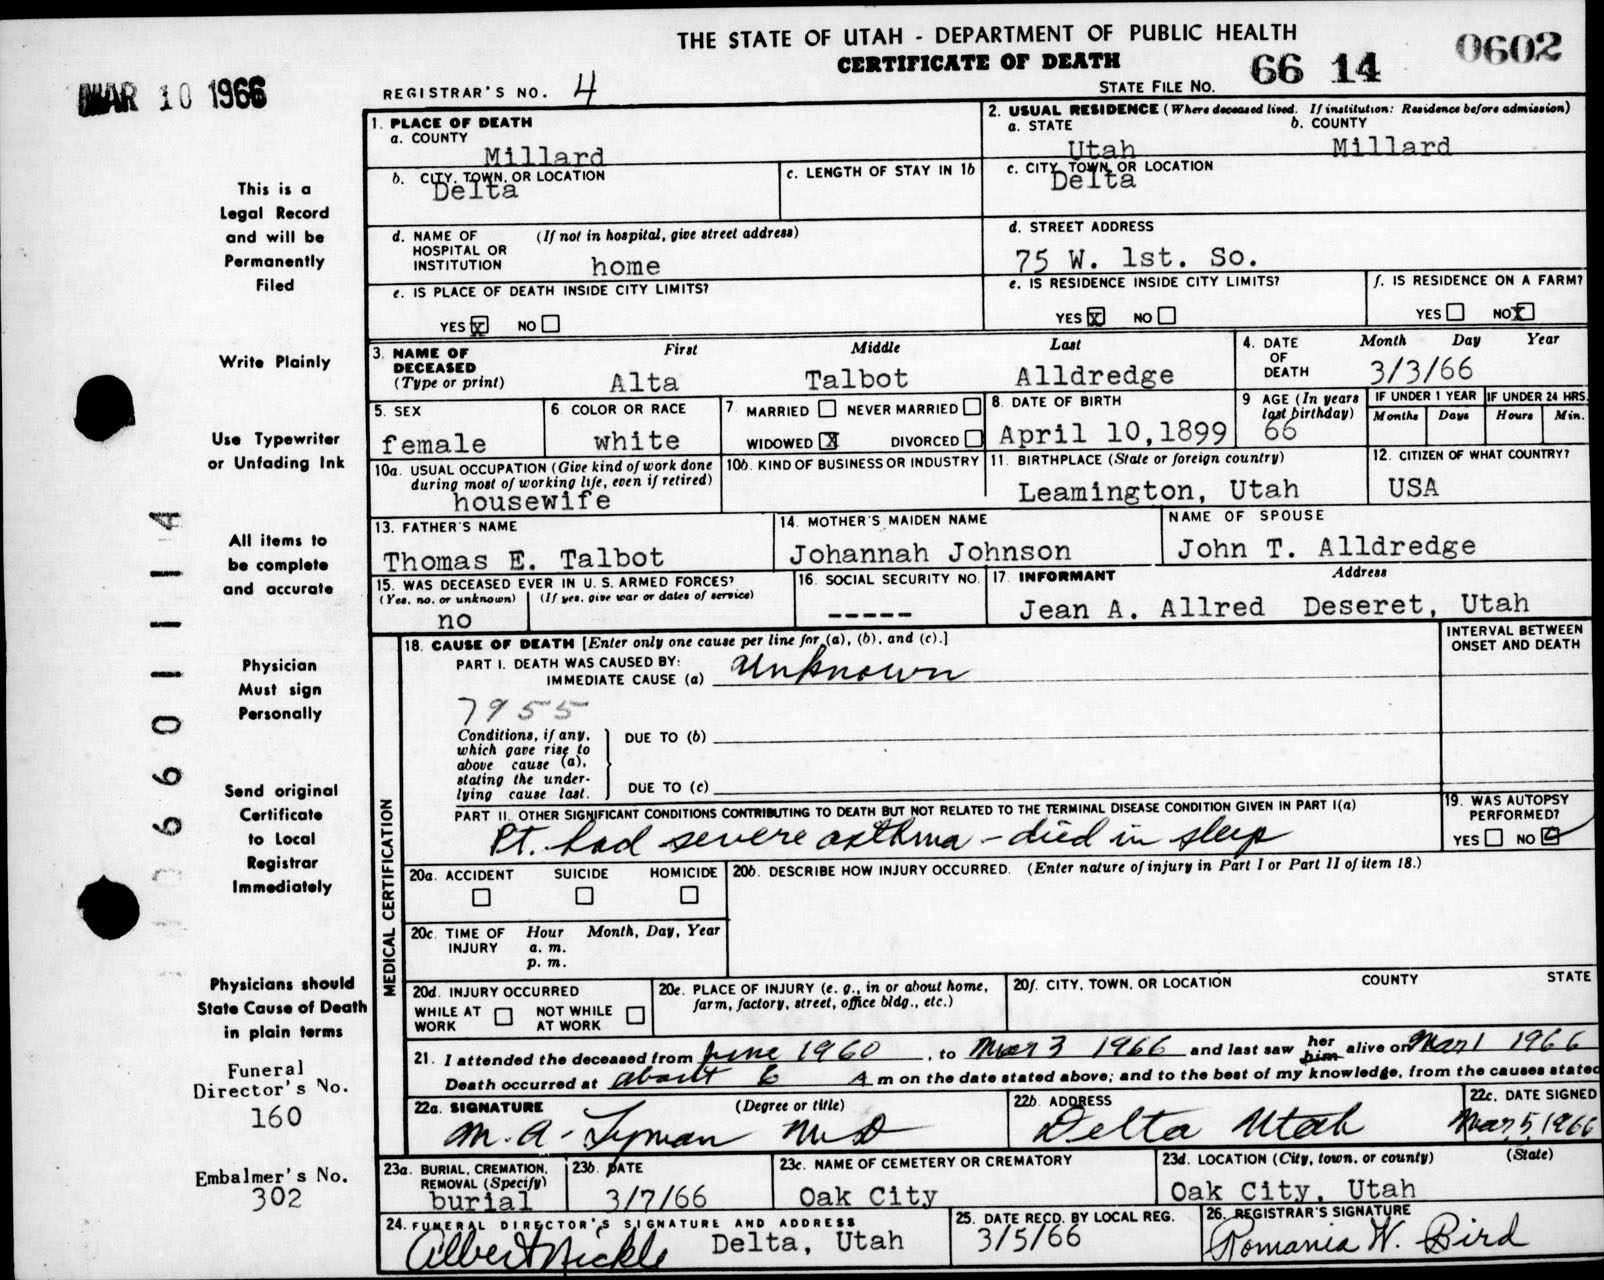 THE STATE OF UTAH - DEPARTMENT OF PUBLIC HEALTH
CERTIFICATE OF DEATH
STATE FILE NO. 66 14 0602
MAR 10 1966
REGISTRAR'S NO. 4
This is a
Legal Record
and will be
Permanently
Filed
Write Plainly
Use Typewriter
or Unfading Ink
All items to
be complete
and accurate
Physician
Must sign
Personally
Send original
Certificate
to Local
Registrar
Immediately
Physicians should
State Cause of Death
in plain terms
Funeral
Director's No.
160
Embalmer's No.
302
1. PLACE OF DEATH
a. COUNTY
Millard
2. USUAL RESIDENCE (Where deceased lived. If institution: Residence before admission)
a. STATE b. COUNTY
Utah Millard
b. CITY, TOWN, OR LOCATION
Delta
c. LENGTH OF STAY IN 1b
c. CITY, TOWN, OR LOCATION
Delta
d. NAME OF HOSPITAL OR INSTITUTION (If not in hospital, give street address)
home
d. STREET ADDRESS
75 W. 1st. So.
e. IS PLACE OF DEATH INSIDE CITY LIMITS?
YES X NO
e. IS RESIDENCE INSIDE CITY LIMITS?
YES X NO
f. IS RESIDENCE ON A FARM?
YES NO X
3. NAME OF DECEASED (Type or print)
First Middle Last
Alta Talbot Alldredge
4. DATE OF DEATH Month Day Year
3/3/66
5. SEX
female
6. COLOR OR RACE
white
7. MARRIED NEVER MARRIED
WIDOWED X DIVORCED
8. DATE OF BIRTH
April 10,1899
9 AGE (In years last birthday)
66
IF UNDER 1 YEAR IF UNDER 24 HRS.
Months Days Hours Min.
10a. USUAL OCCUPATION (Give kind of work done during most of working life, even if retired)
housewife
10b. KIND OF BUSINESS OR INDUSTRY
11. BIRTHPLACE (State or foreign country)
Leamington, Utah
12. CITIZEN OF WHAT COUNTRY?
USA
13. FATHER'S NAME
Thomas E. Talbot
14. MOTHER'S MAIDEN NAME
Johannah Johnson
NAME OF SPOUSE
John T. Alldredge
15. WAS DECEASED EVER IN U. S. ARMED FORCES?
(Yes, no, or unknown) (If yes, give war or dates of service)
no
16. SOCIAL SECURITY NO.
-----
17. INFORMANT Address
Jean A. Allred Deseret, Utah
MEDICAL CERTIFICATION
18. CAUSE OF DEATH [Enter only one cause per line for (a), (b), and (c).]
INTERVAL BETWEEN ONSET AND DEATH
PART I. DEATH WAS CAUSED BY:
IMMEDIATE CAUSE (a) Unknown
7955
Conditions, if any, which gave rise to above cause (a), stating the underlying cause last.
DUE TO (b)
DUE TO (c)
PART II. OTHER SIGNIFICANT CONDITIONS CONTRIBUTING TO DEATH BUT NOT RELATED TO THE TERMINAL DISEASE CONDITION GIVEN IN PART I(a)
Pt. had severe asthma - died in sleep
19. WAS AUTOPSY PERFORMED?
YES NO
20a. ACCIDENT SUICIDE HOMICIDE
20b. DESCRIBE HOW INJURY OCCURRED. (Enter nature of injury in Part I or Part II of item 18.)
20c. TIME OF INJURY Hour Month, Day, Year
a. m.
p. m.
20d. INJURY OCCURRED
WHILE AT WORK NOT WHILE AT WORK
20e. PLACE OF INJURY (e. g., in or about home, farm, factory, street, office bldg., etc.)
20f. CITY, TOWN, OR LOCATION COUNTY STATE
21. I attended the deceased from June 1960, to Mar 3 1966 and last saw her him alive on Mar 1 1966
Death occurred at about 6 A m on the date stated above; and to the best of my knowledge, from the causes stated
22a. SIGNATURE (Degree or title)
M. A. Lyman MD
22b. ADDRESS
Delta Utah
22c. DATE SIGNED
Mar 5, 1966
23a. BURIAL, CREMATION, REMOVAL (Specify)
burial
23b. DATE
3/7/66
23c. NAME OF CEMETERY OR CREMATORY
Oak City
23d. LOCATION (City, town, or county) (State)
Oak City, Utah
24. FUNERAL DIRECTOR'S SIGNATURE AND ADDRESS
Albert Nickle Delta, Utah
25. DATE RECD. BY LOCAL REG.
3/5/66
26. REGISTRAR'S SIGNATURE
Romania W. Bird